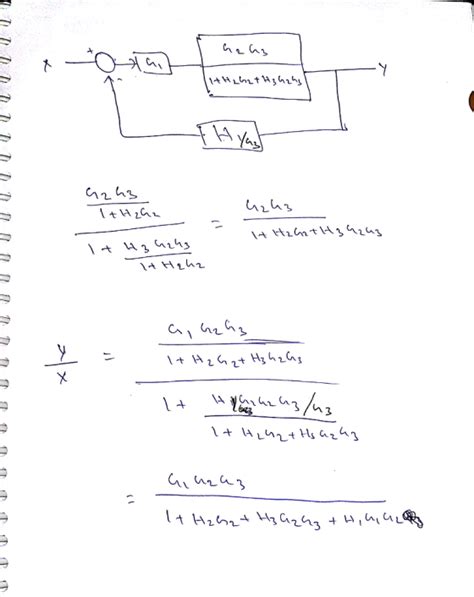 G2G3
X + G1 1+H2G2+H3G2G3 Y
-
H1/G3
G2G3
1+H2G2
1 + H3G2G3
1+H2G2
= G2G3
1+H2G2+H3G2G3
Y
X
=
G1G2G3
1+H2G2+H3G2G3
1 + G2G3/G3
1+H2G2+H3G2G3
= G1G2G3
1+H2G2+H3G2G3+H1G1G2